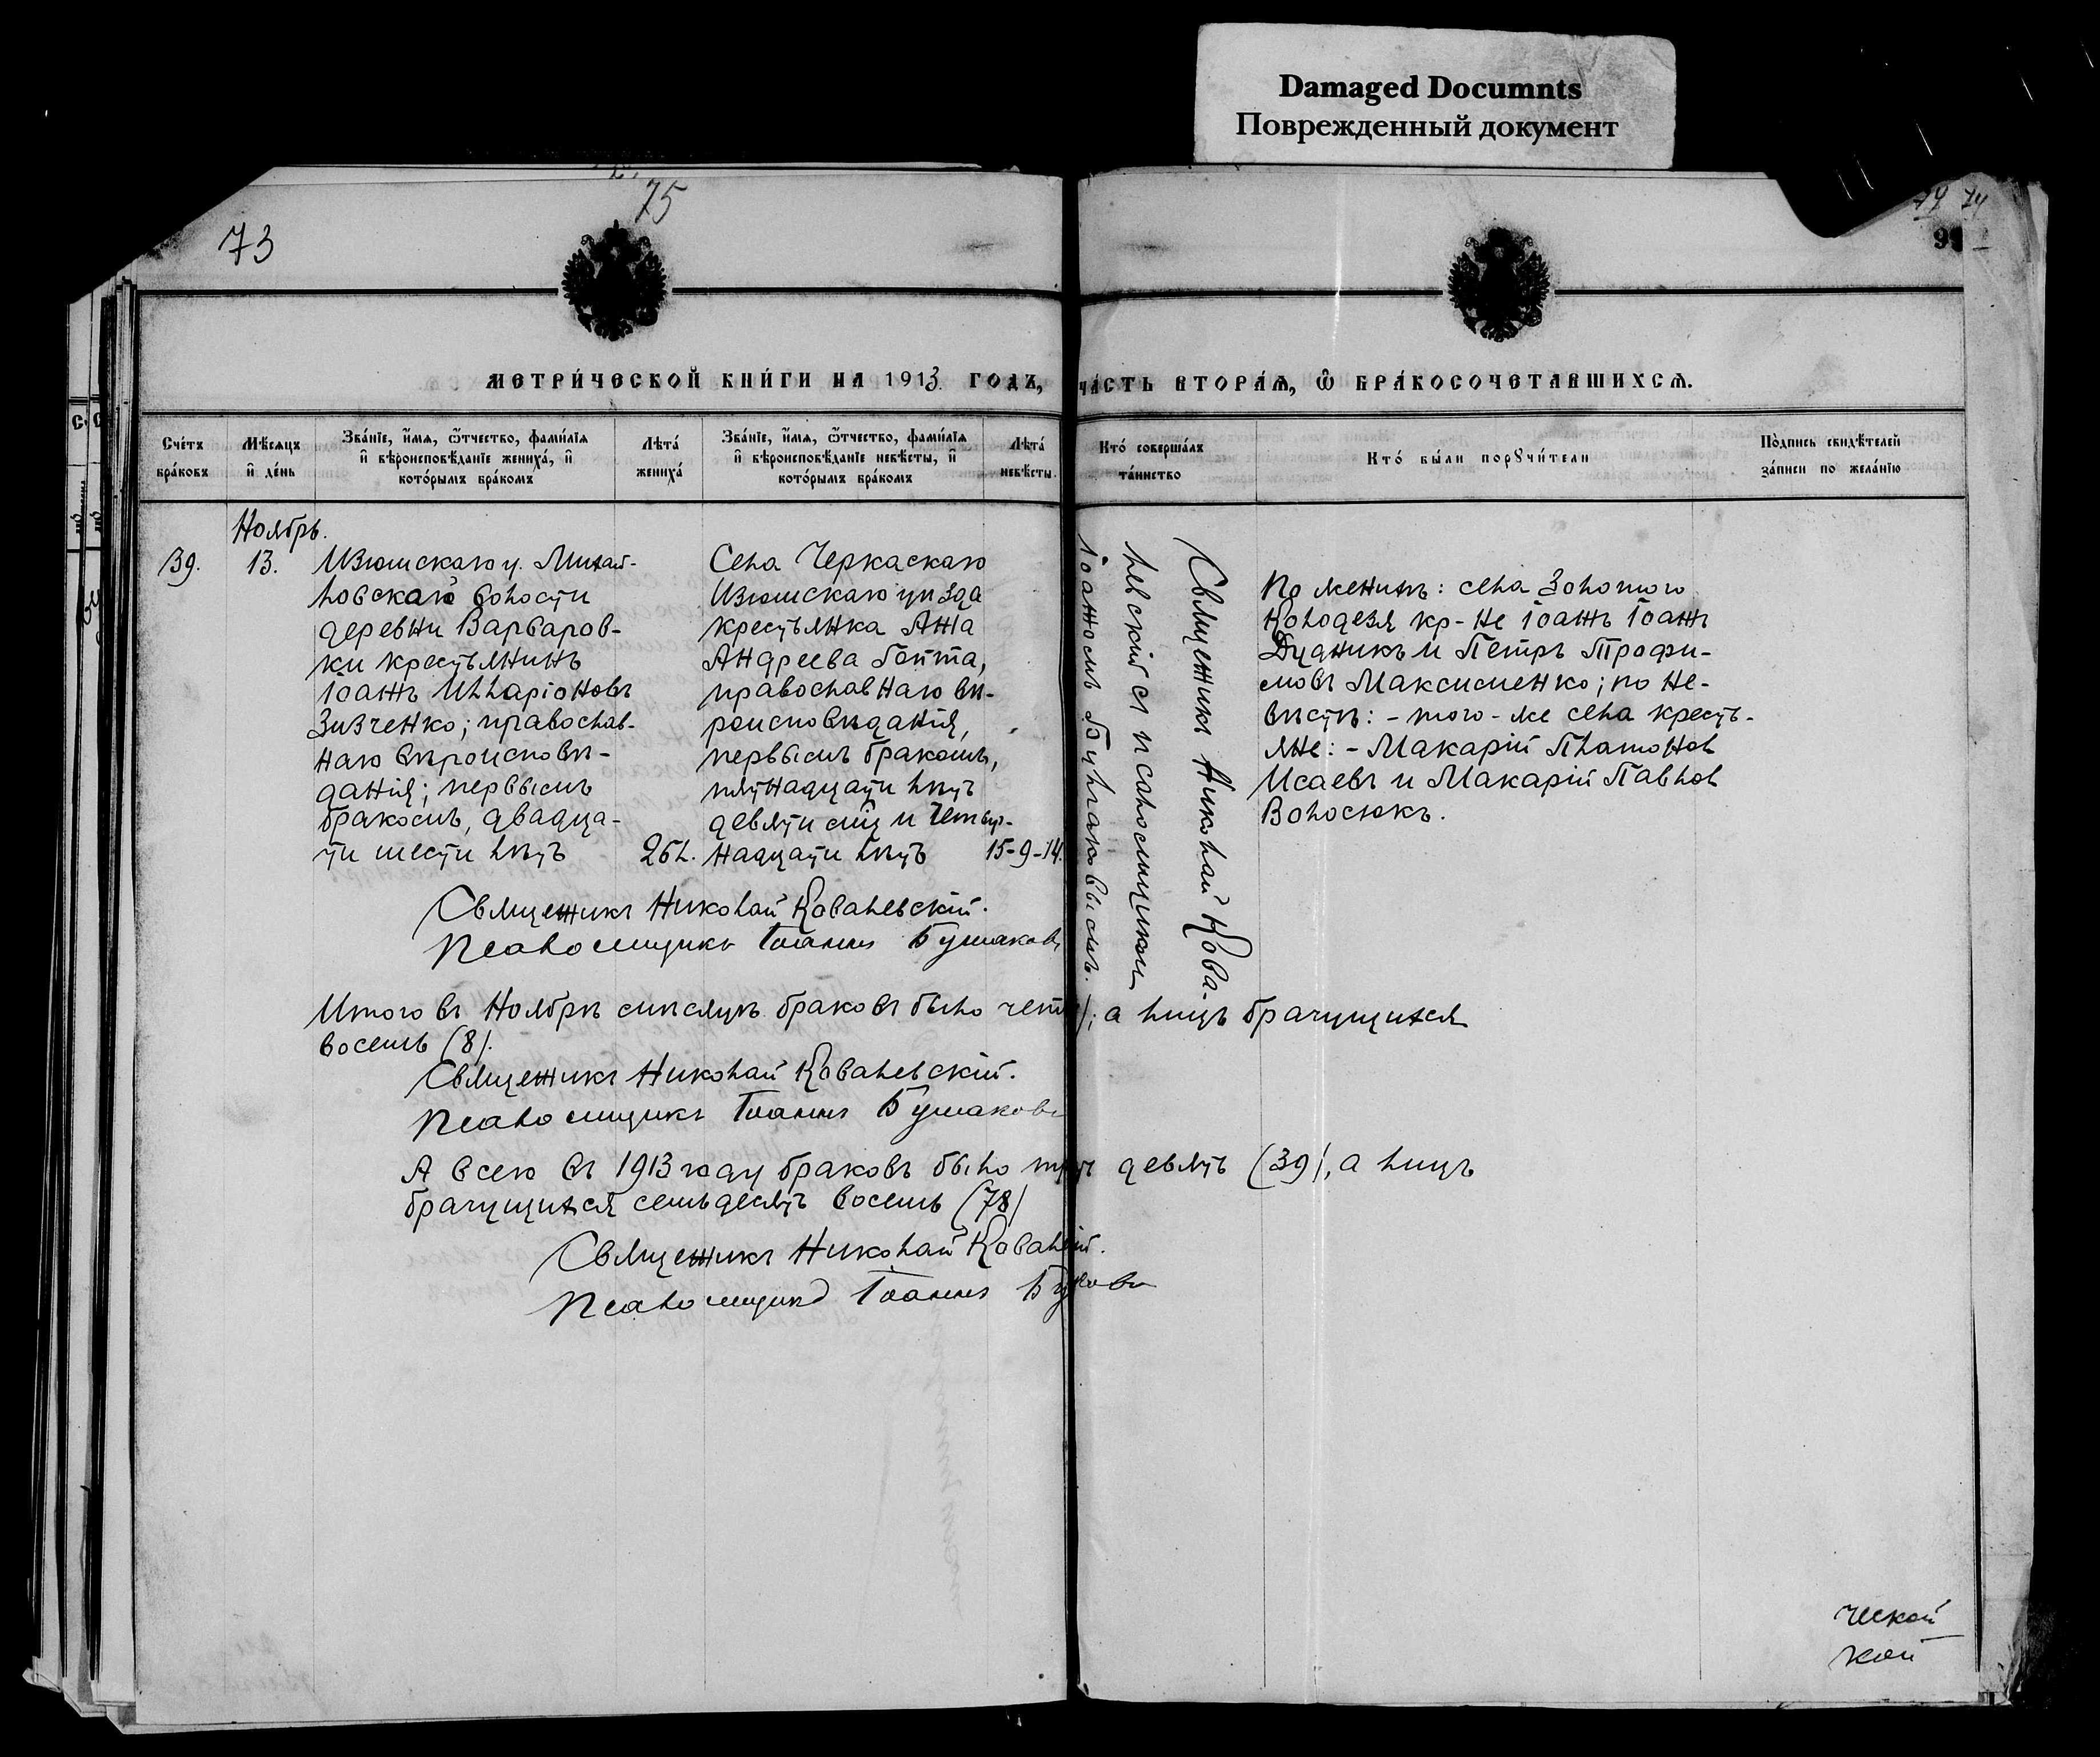 Damaged Documnts
Поврежденный документ
75
73
74 74
99
МЕТРИ́ЧЕСКОЙ КНИ́ГИ НА 1913. ГОДЪ, ЧА́СТЬ ВТОРА́Ѧ, Ѡ҆ БРА́КОСОЧЕТАВШИХСѦ.
Сче́тъ бра́ковъ
Мѣ́сяцъ и҆ де́нь
Зва́нїе, и҆́мѧ, ѻ҆́тчество, фами́лїѧ и҆ вѣ́роисповѣ́данїе жениха̀, и҆ кото́рымъ бра́комъ
Лѣта̀ жениха̀
Зва́нїе, и҆́мѧ, ѻ҆́тчество, фами́лїѧ и҆ вѣ́роисповѣ́данїе невѣ́сты, и҆ кото́рымъ бра́комъ
Лѣта̀ невѣ́сты.
Кто̀ соверша́лъ та́инство
Кто̀ бы́ли порꙋчи́тели
По́дпись свидѣ́телей за́писи по жела́нїю
Ноябрь.
39. 13.
Изюмскаго у. Михай-
ловской волости
деревни Варваров-
ки крестьянинъ
Іоаннъ Илларіоновъ
Зизченко; православ-
наго вѣроисповѣ-
данія; первымъ
бракомъ, двадца-
ти шести лѣтъ
26 л.
Села Черкаскаго
Изюмскаго уѣзда
крестьянка Анна
Андреева Гопта,
православнаго вѣ-
роисповѣданія,
первымъ бракомъ,
пятнадцати лѣтъ
девяти мѣц и четыр-
надцати лѣтъ
15-9-14.
Священникъ Николай Кова-
левскій съ псаломщикомъ
Іоанномъ Булгаковымъ.
По женихѣ: села Золотого
Колодезя кр-не Іоаннъ Іоаннъ
Дудникъ и Петръ Трофи-
мовъ Максименко; по не-
вѣстѣ: - того-же села кресть-
яне: - Макарій Платонов
Исаевъ и Макарій Павлов
Волосюкъ.
Священникъ Николай Ковалевскій.
Псаломщикъ Іоаннъ Булгаковъ
Итого въ Ноябрѣ мѣсяцѣ браковъ было чет ); а лицъ брачущихся
восемь (8).
Священникъ Николай Ковалевскій.
Псаломщикъ Іоаннъ Булгаковъ
А всего въ 1913 году браковъ было девять (39), а лицъ
брачущихся семьдесятъ восемь (78)
Священникъ Николай Ковалевскій.
Псаломщикъ Іоаннъ Булгаковъ
ческой
кой